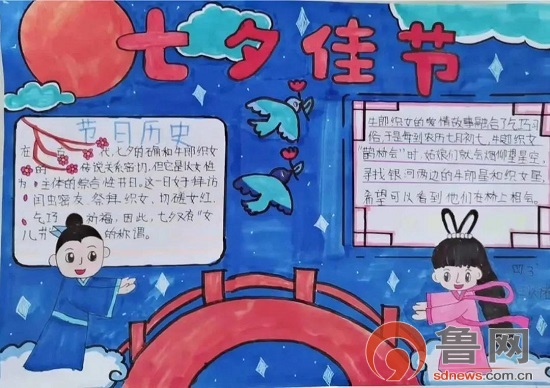 七夕佳节
节日历史
在 古 代,七夕的确和牛郎织女
的 传说关系密切,但它是以女性
为 主体的综合性节日,这一日女子拜访
闺中密友、祭拜织女、切磋女红、
乞巧 祈福,因此,七夕又有“女
儿节” 的称谓。
牛郎织女的爱情故事融合了乞巧习
俗,于是每到农历七月初七,牛郎织女
“鹊桥会”时,姑娘们就会烟仰望星空,
寻找银河两边的牛郎星和织女星,
希望可以看到他们在桥上相会。
鲁网
sdnews.com.cn